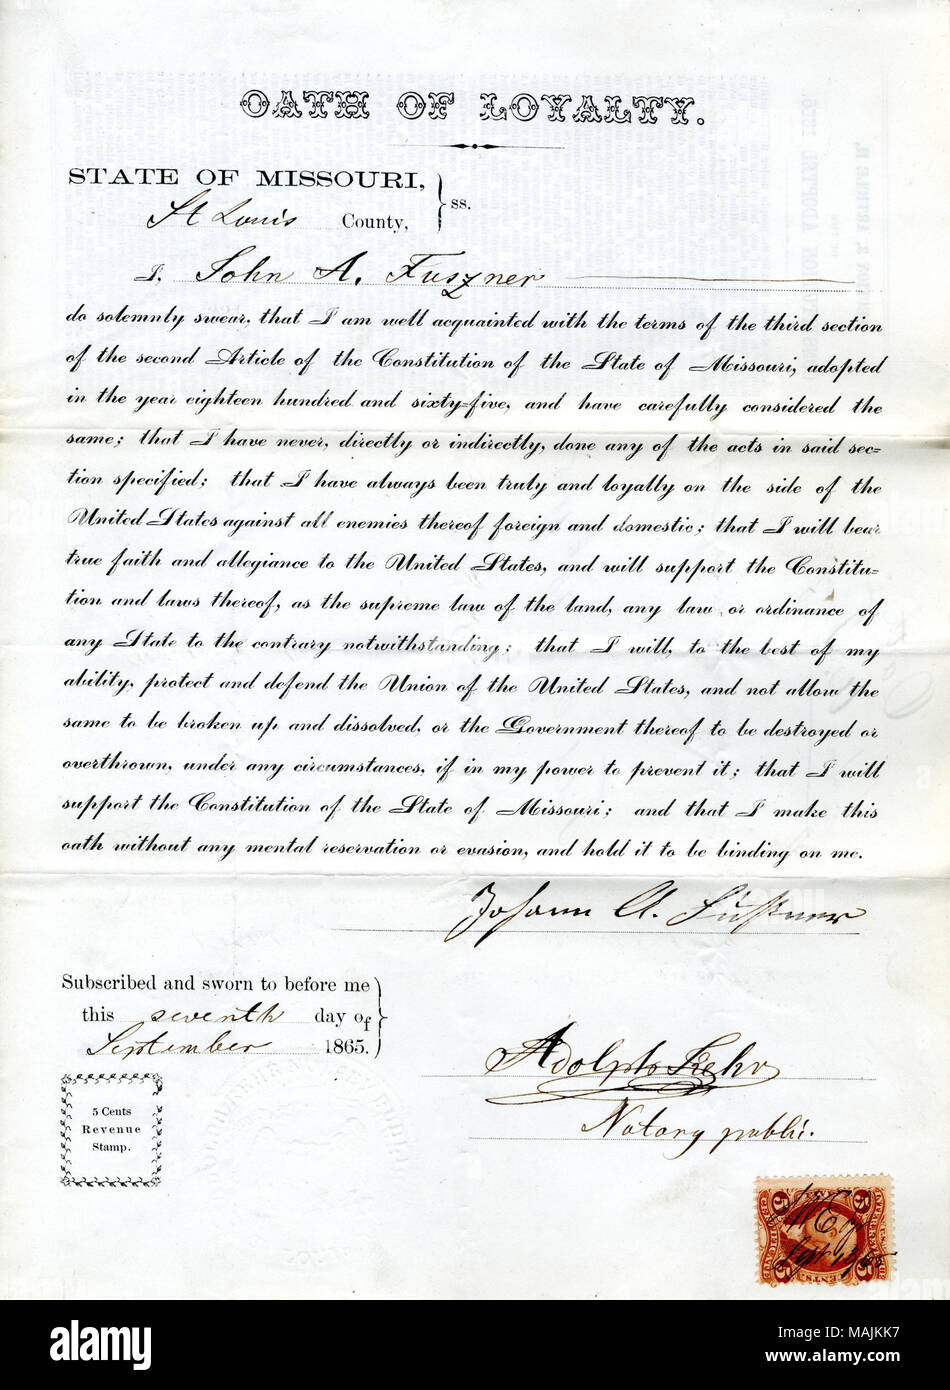 OATH OF LOYALTY.
STATE OF MISSOURI,
St Louis County, } ss.
I, John A. Fuszner
do solemnly swear, that I am well acquainted with the terms of the third section
of the second Article of the Constitution of the State of Missouri, adopted
in the year eighteen hundred and sixty-five, and have carefully considered the
same; that I have never, directly or indirectly, done any of the acts in said sec-
tion specified; that I have always been truly and loyally on the side of the
United States against all enemies thereof foreign and domestic; that I will bear
true faith and allegiance to the United States, and will support the Constitu-
tion and laws thereof, as the supreme law of the land, any law or ordinance of
any State to the contrary notwithstanding; that I will, to the best of my
ability, protect and defend the Union of the United States, and not allow the
same to be broken up and dissolved, or the Government thereof to be destroyed or
overthrown, under any circumstances, if in my power to prevent it; that I will
support the Constitution of the State of Missouri; and that I make this
oath without any mental reservation or evasion, and hold it to be binding on me.
Johann A.
Subscribed and sworn to before me
this seventh day of
September 1865.
Adolph
Notary public.
5 Cents
Revenue
Stamp.
5 5
Sept 13/65
alamy
Image ID: MAJKK7
www.alamy.com